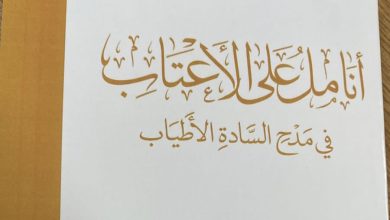 أنامل على الأعتاب
في مدح السادة الأطياب